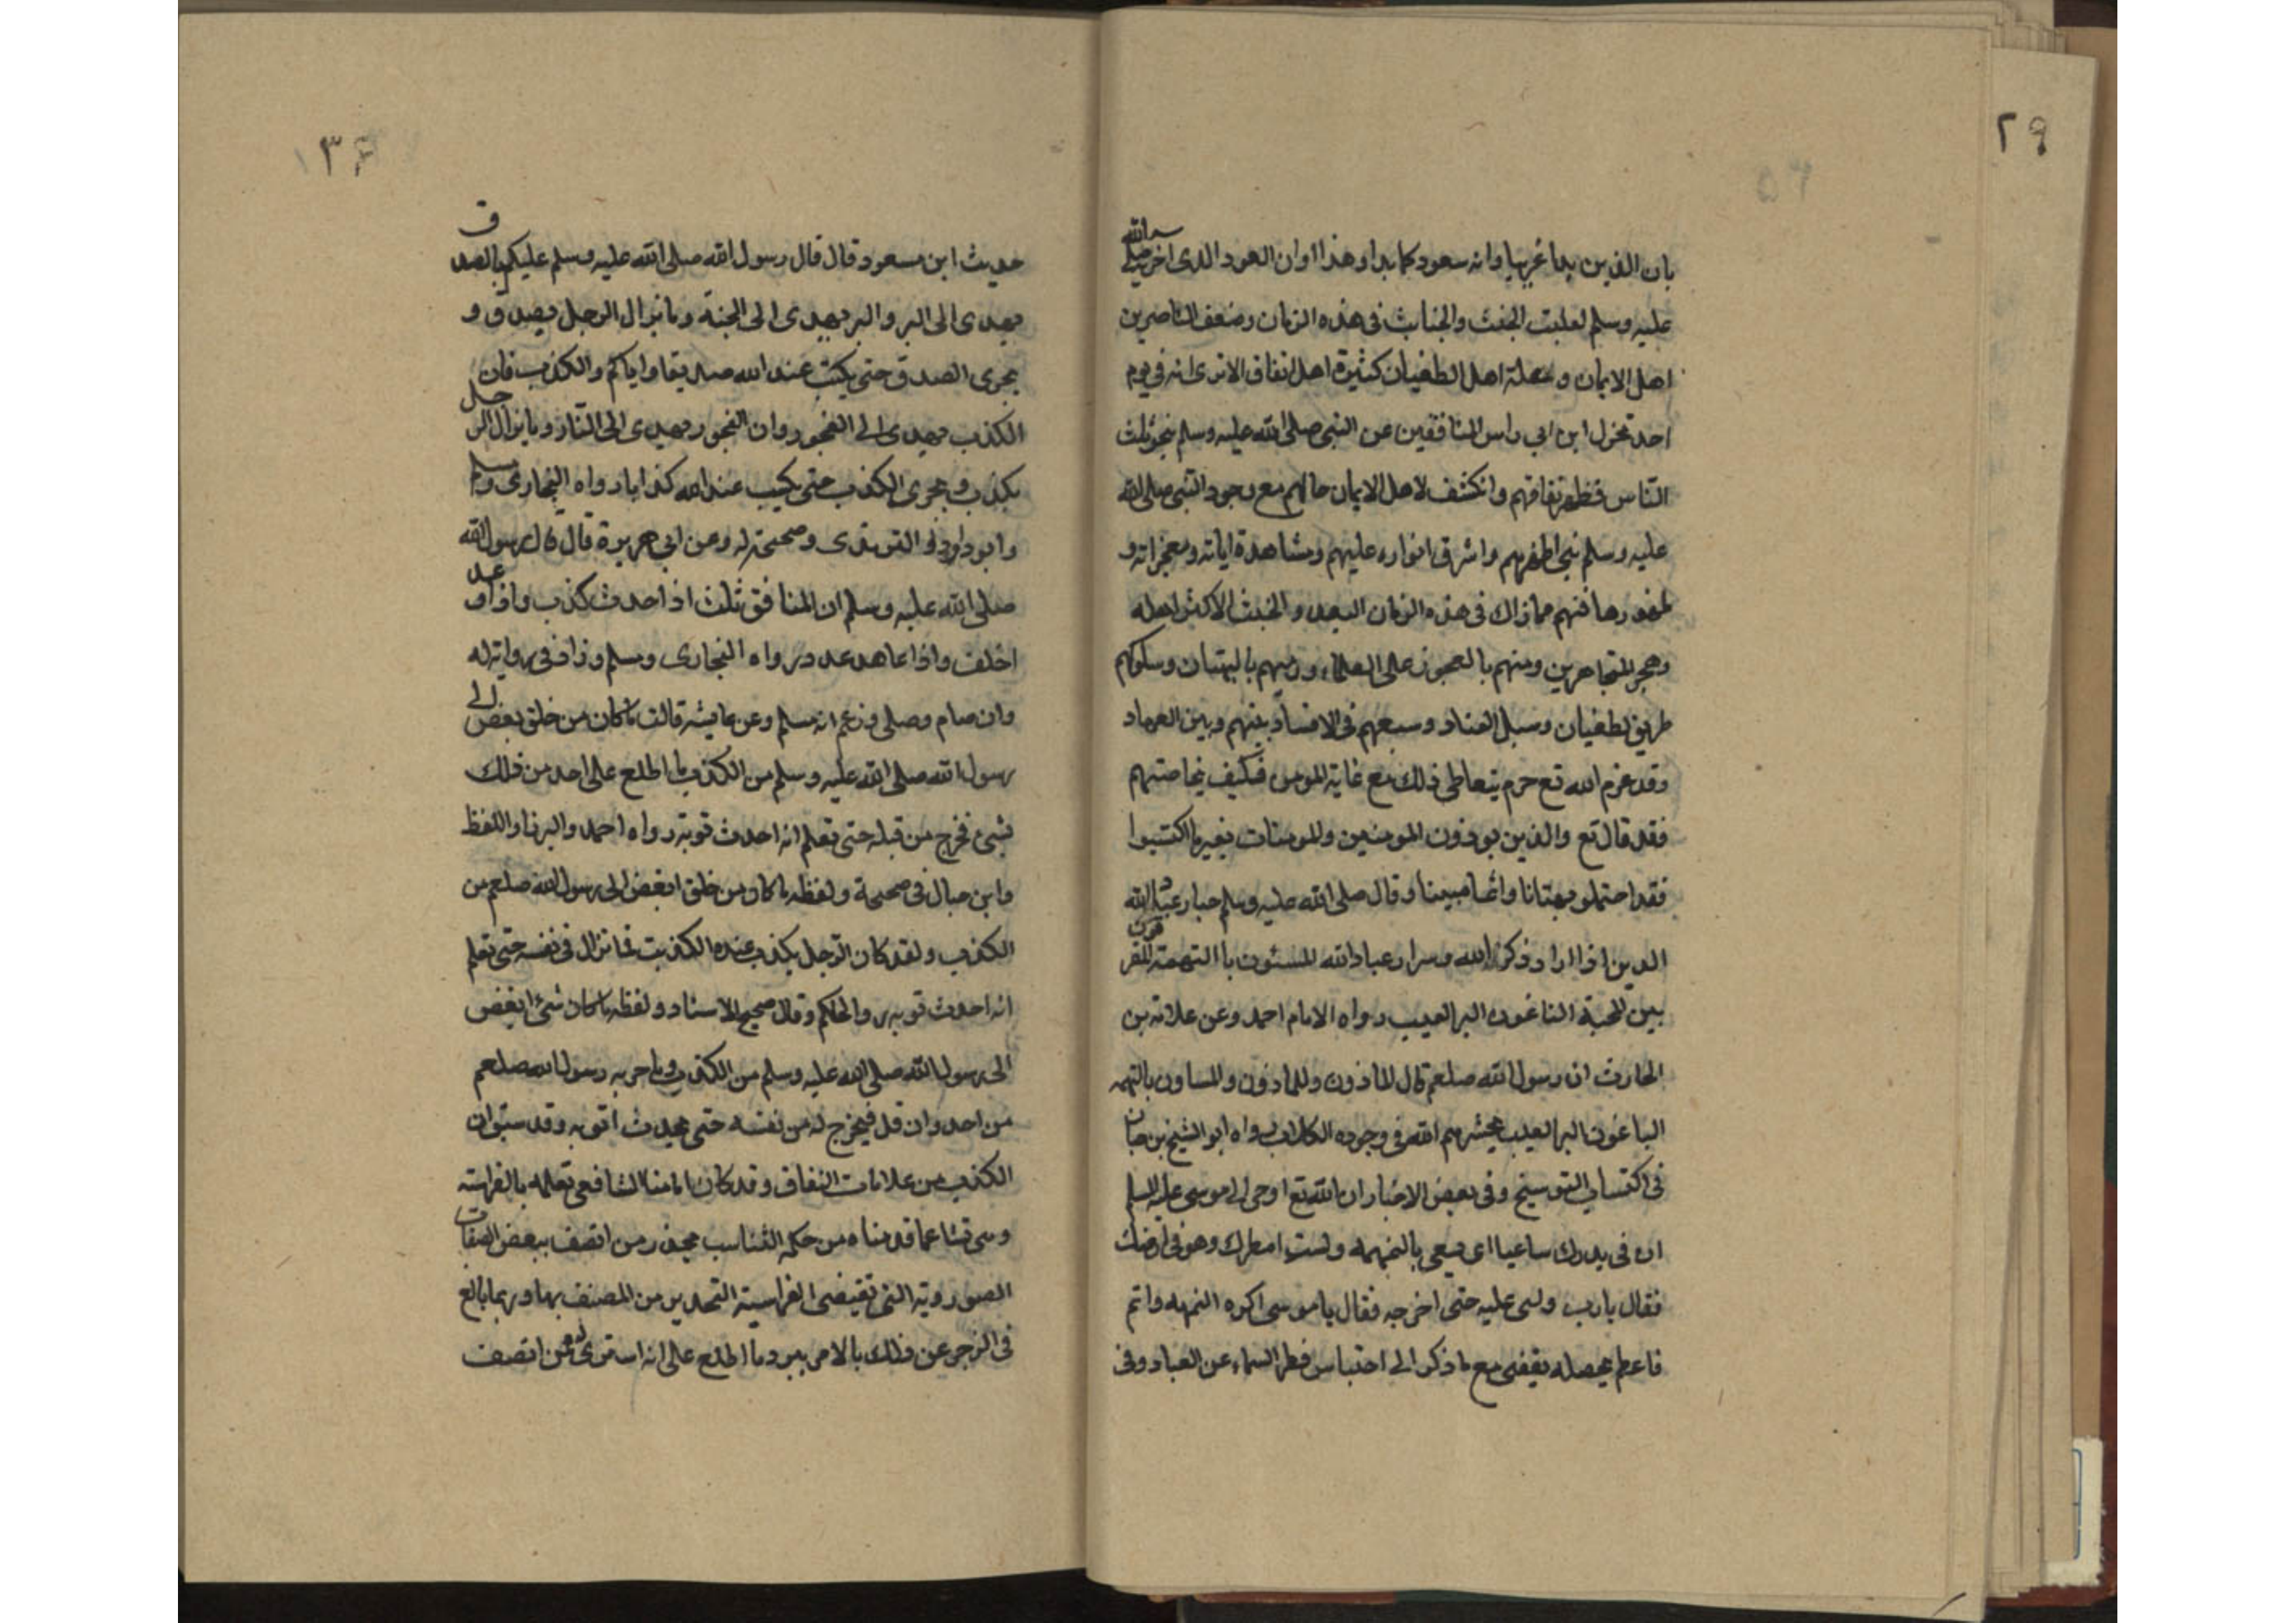 ٢٩
بان الدين بدا غريبا وانه سعود كما بدا وهذا اوان العود الدى اخر صلى الله
عليه وسلم لغلبت الخبث والخبايث فى هذه الزمان وضعف الناصرين
اهل الايمان و اهل الطغيان كثيرة اهل النفاق الا ترى انه فى يوم
احد تخزل ابن ابى راس المنافقين عن النبى صلى الله عليه وسلم بنحو ثلث
الناس فظهر نفاقهم وانكشف لاهل الايمان حالهم مع وجود النبى صلى الله
عليه وسلم بين اظهرهم واشرق انواره عليهم ومشاهدة اياته ومعجزاته و
فما زاك فى هذه الزمان البعيد والخبث الاكثر اهله
على العلماء ورميهم بالبهتان وسلوكهم
طريق الطغيان وسبل العناد وسعيهم فى الافساد بينهم وبين العباد
وقد الله تع حرم يتعاطى ذلك مع غاية المومن فكيف بخاصتهم
فقد قال تع والذين يوذون المومنين والمومنات بغير ما اكتسبوا
فقد احتملو بهتانا واثما مبينا وقال صلى الله عليه وسلم خيار عباد الله
الدين اذا ارا و ذكر الله وسرار عباد الله المسئون باالتهمة المفرقون
بين المحبة الباغون البر العيب رواه الامام احمد وعن علاته بن
الحارث ان رسول الله صلعم قال للمازون وللمازون والمساون بالتهمه
الباغون البر العيب يحشرهم الله فى وجوه الكلاب رواه ابو الشيخ بن حبان
فى اكتساب التوسيخ وفى بعض الاخبار ان الله تع اوحى الى موسى عليه السلم
ان فى بلدك ساعيا اى يسعى بالنميمه ولست امطرك وهو فى ارضك
فقال يارب دلنى عليه حتى اخرجه فقال ياموسى اكره النميمه وانم
فاعظم بخصله يفضى مع ما ذكر الى احتباس قطر السماء عن العباد وفى
١٣
حديث ابن مسعود قال قال رسول الله صلى الله عليه وسلم عليكم بالصدق
يهدى الى البر والبر يهدى الى الجنة وما يزال الرجل يصدق و
يحرى الصدق حتى يكتب عند الله صديقا واياكم والكذب فان
الكذب يهدى الى الفجور وان الفجور يهدى الى النار وما يزال الرجل
يكذب ويحرى الكذب حتى يكتب عند الله كذابا رواه البخارى ومسلم
وابو داود و الترمذى وصححته له وعن ابى هريرة قال قال رسول الله
صلى الله عليه وسلم ان المنافق ثلث اذا حدث كذب واذا وعد
اخلف واذا عاهد عدر رواه البخارى ومسلم وزاد فى رواية له
وان صام وصلى وزعم انه مسلم وعن عايشه قالت ما كان من خلق بغض الى
رسول الله صلى الله عليه وسلم من الكذب ما اطلع على احد من ذلك
بشئ فخرج من قبله حتى تعلم انه احدث توبة رواه احمد والبزار واللفظ
وابن حبال فى صحيحة ولفظه ما كان من خلق ابغض الى رسول الله صلعم من
الكذب ولقد كان الرجل يكذب عنده الكذبت فما تزال فى نفسه حتى تعلم
انه احدث توبه والحاكم وقال صحيح الاسناد ولفظه ما كان شئ ابغض
الى رسول الله صلى الله عليه وسلم من الكذب وما جربه رسول الله صلعم
من احد وان قل فيخرج له من نفسه حتى يحدث اتوبه وقد سبق ان
الكذب من علامات النفاق وقد كان امامنا الشافعى تعلمه بالفراسته
عما قدمناه من حكمه التناسب يحذر من اتصف ببعض الصفات
الصورويه التى تقيضى الفراسية التحديرمن المصنف بها وربما بالغ
فى الزجر عن ذلك بالامر ببرد ما اطلع على انه استرى له ممن اتصف